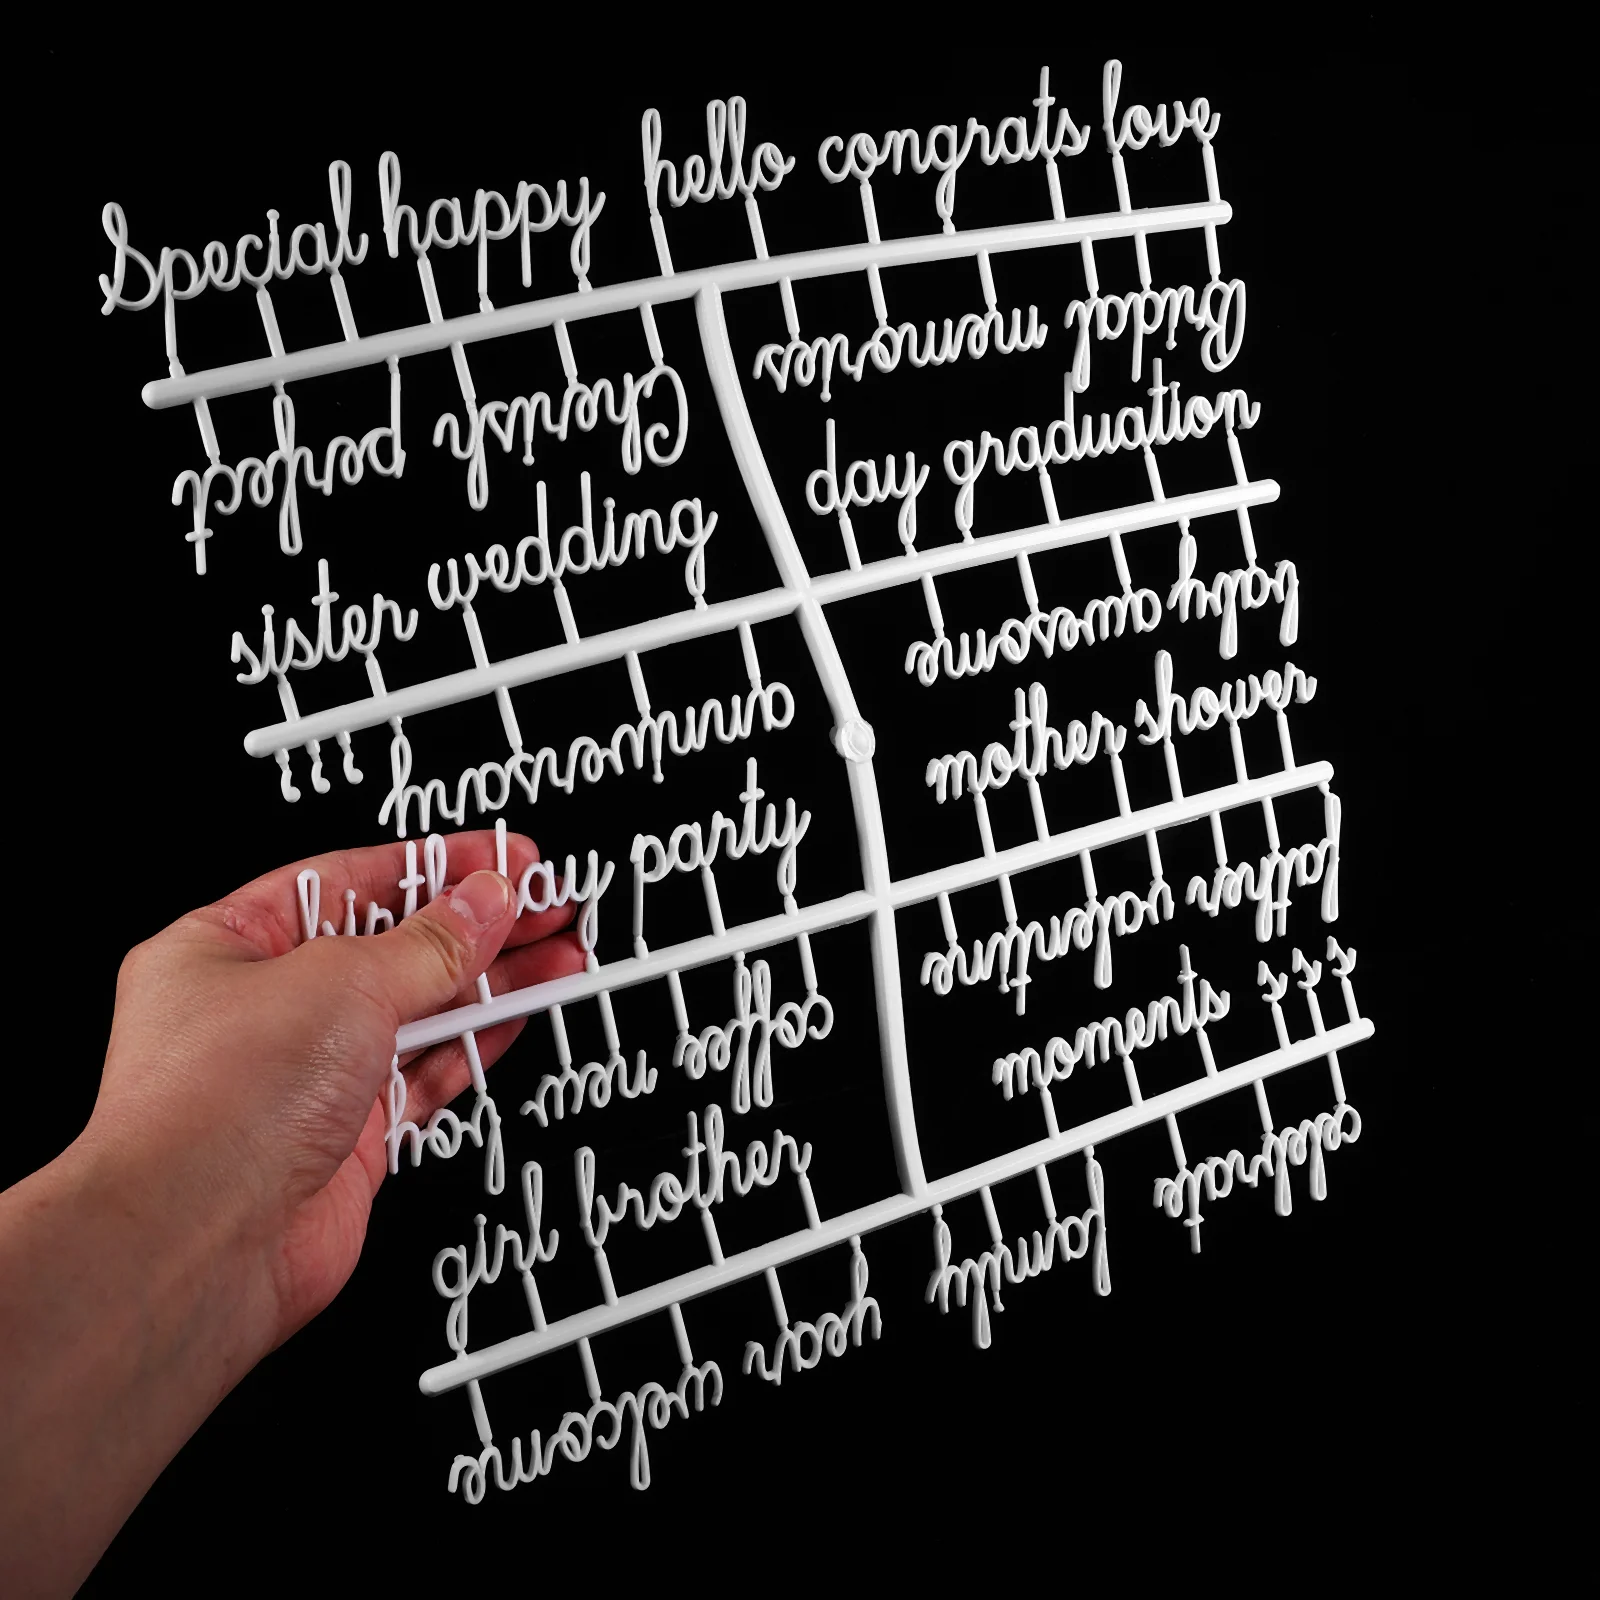 Special happy hello congrats love
perfect Cherish memories Bridal
sister wedding day graduation
, , , anniversary awesome baby
birthday party mother shower
boy new coffee valentine father
girl brother moments s s s
welcome year family celebrate